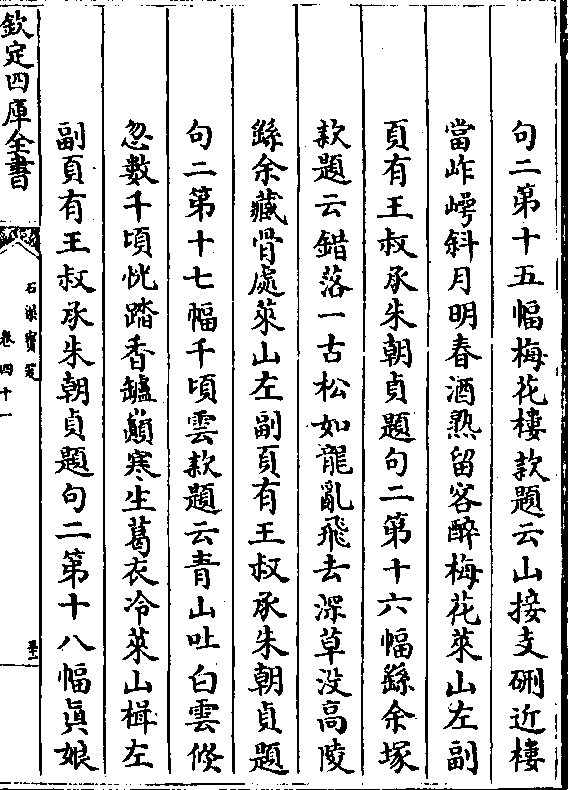 句二第十五幅梅花樓款題云山接支硎近樓
當岞崿斜月明春酒熟留客醉梅花萊山左副
頁有王叔承朱朝貞題句二第十六幅繇余塚
款題云錯落一古松如龍亂飛去深草没高陵
繇余藏骨處萊山左副頁有王叔承朱朝貞題
句二第十七幅千頃雲款題云青山吐白雲倏
忽數千頃恍踏香鑪巔寒生葛衣冷萊山楫左
副頁有王叔承朱朝貞題句二第十八幅眞娘
欽定四庫全書
石渠寶笈
卷四十一